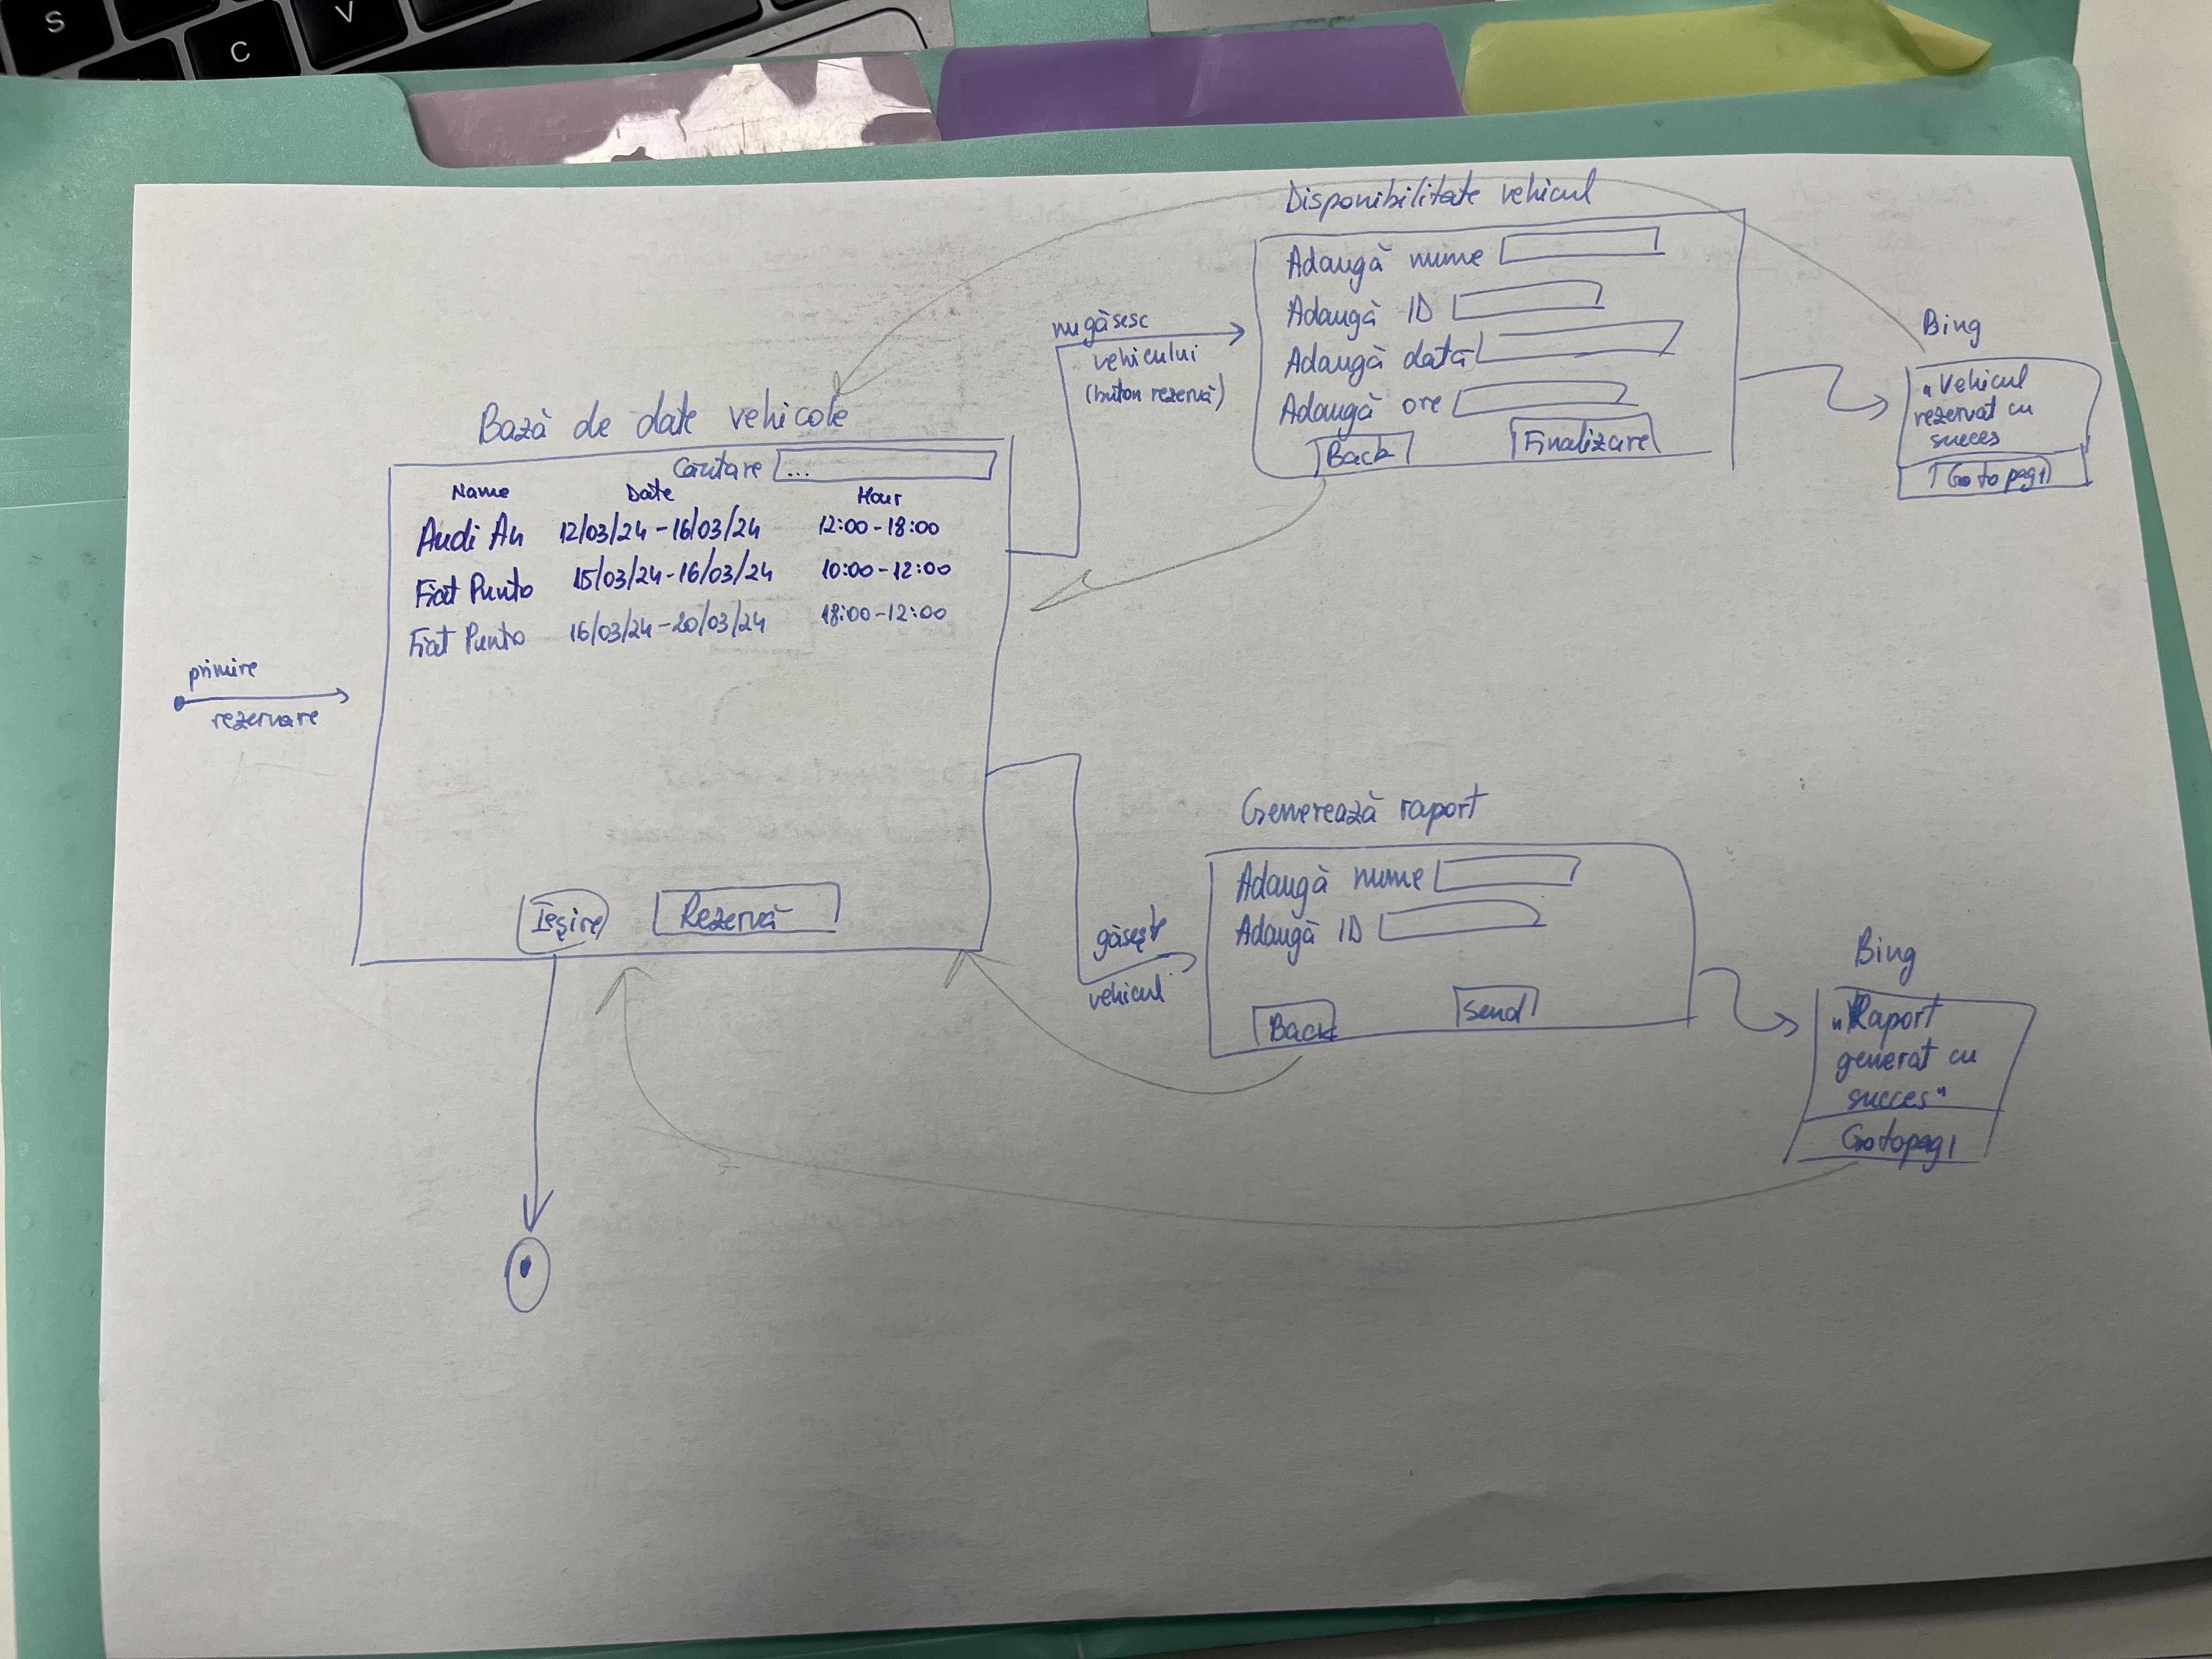 primire
rezervare
Bază de date vehicole
Căutare ...
Name Date Hour
Audi A4 12/03/24 - 16/03/24 12:00 - 18:00
Fiat Punto 15/03/24 - 16/03/24 10:00 - 12:00
Fiat Punto 16/03/24 - 20/03/24 18:00 - 12:00
Ieșire Rezervă
nu găsesc
vehicului
(buton rezervă)
Disponibilitate vehicul
Adaugă nume
Adaugă ID
Adaugă data
Adaugă ore
Back Finalizare
Bing
"Vehicul
rezervat cu
succes
Go to pag 1
găsește
vehicul
Generează raport
Adaugă nume
Adaugă ID
Back Send
Bing
"Raport
generat cu
succes"
Go to pag 1
S
C
V